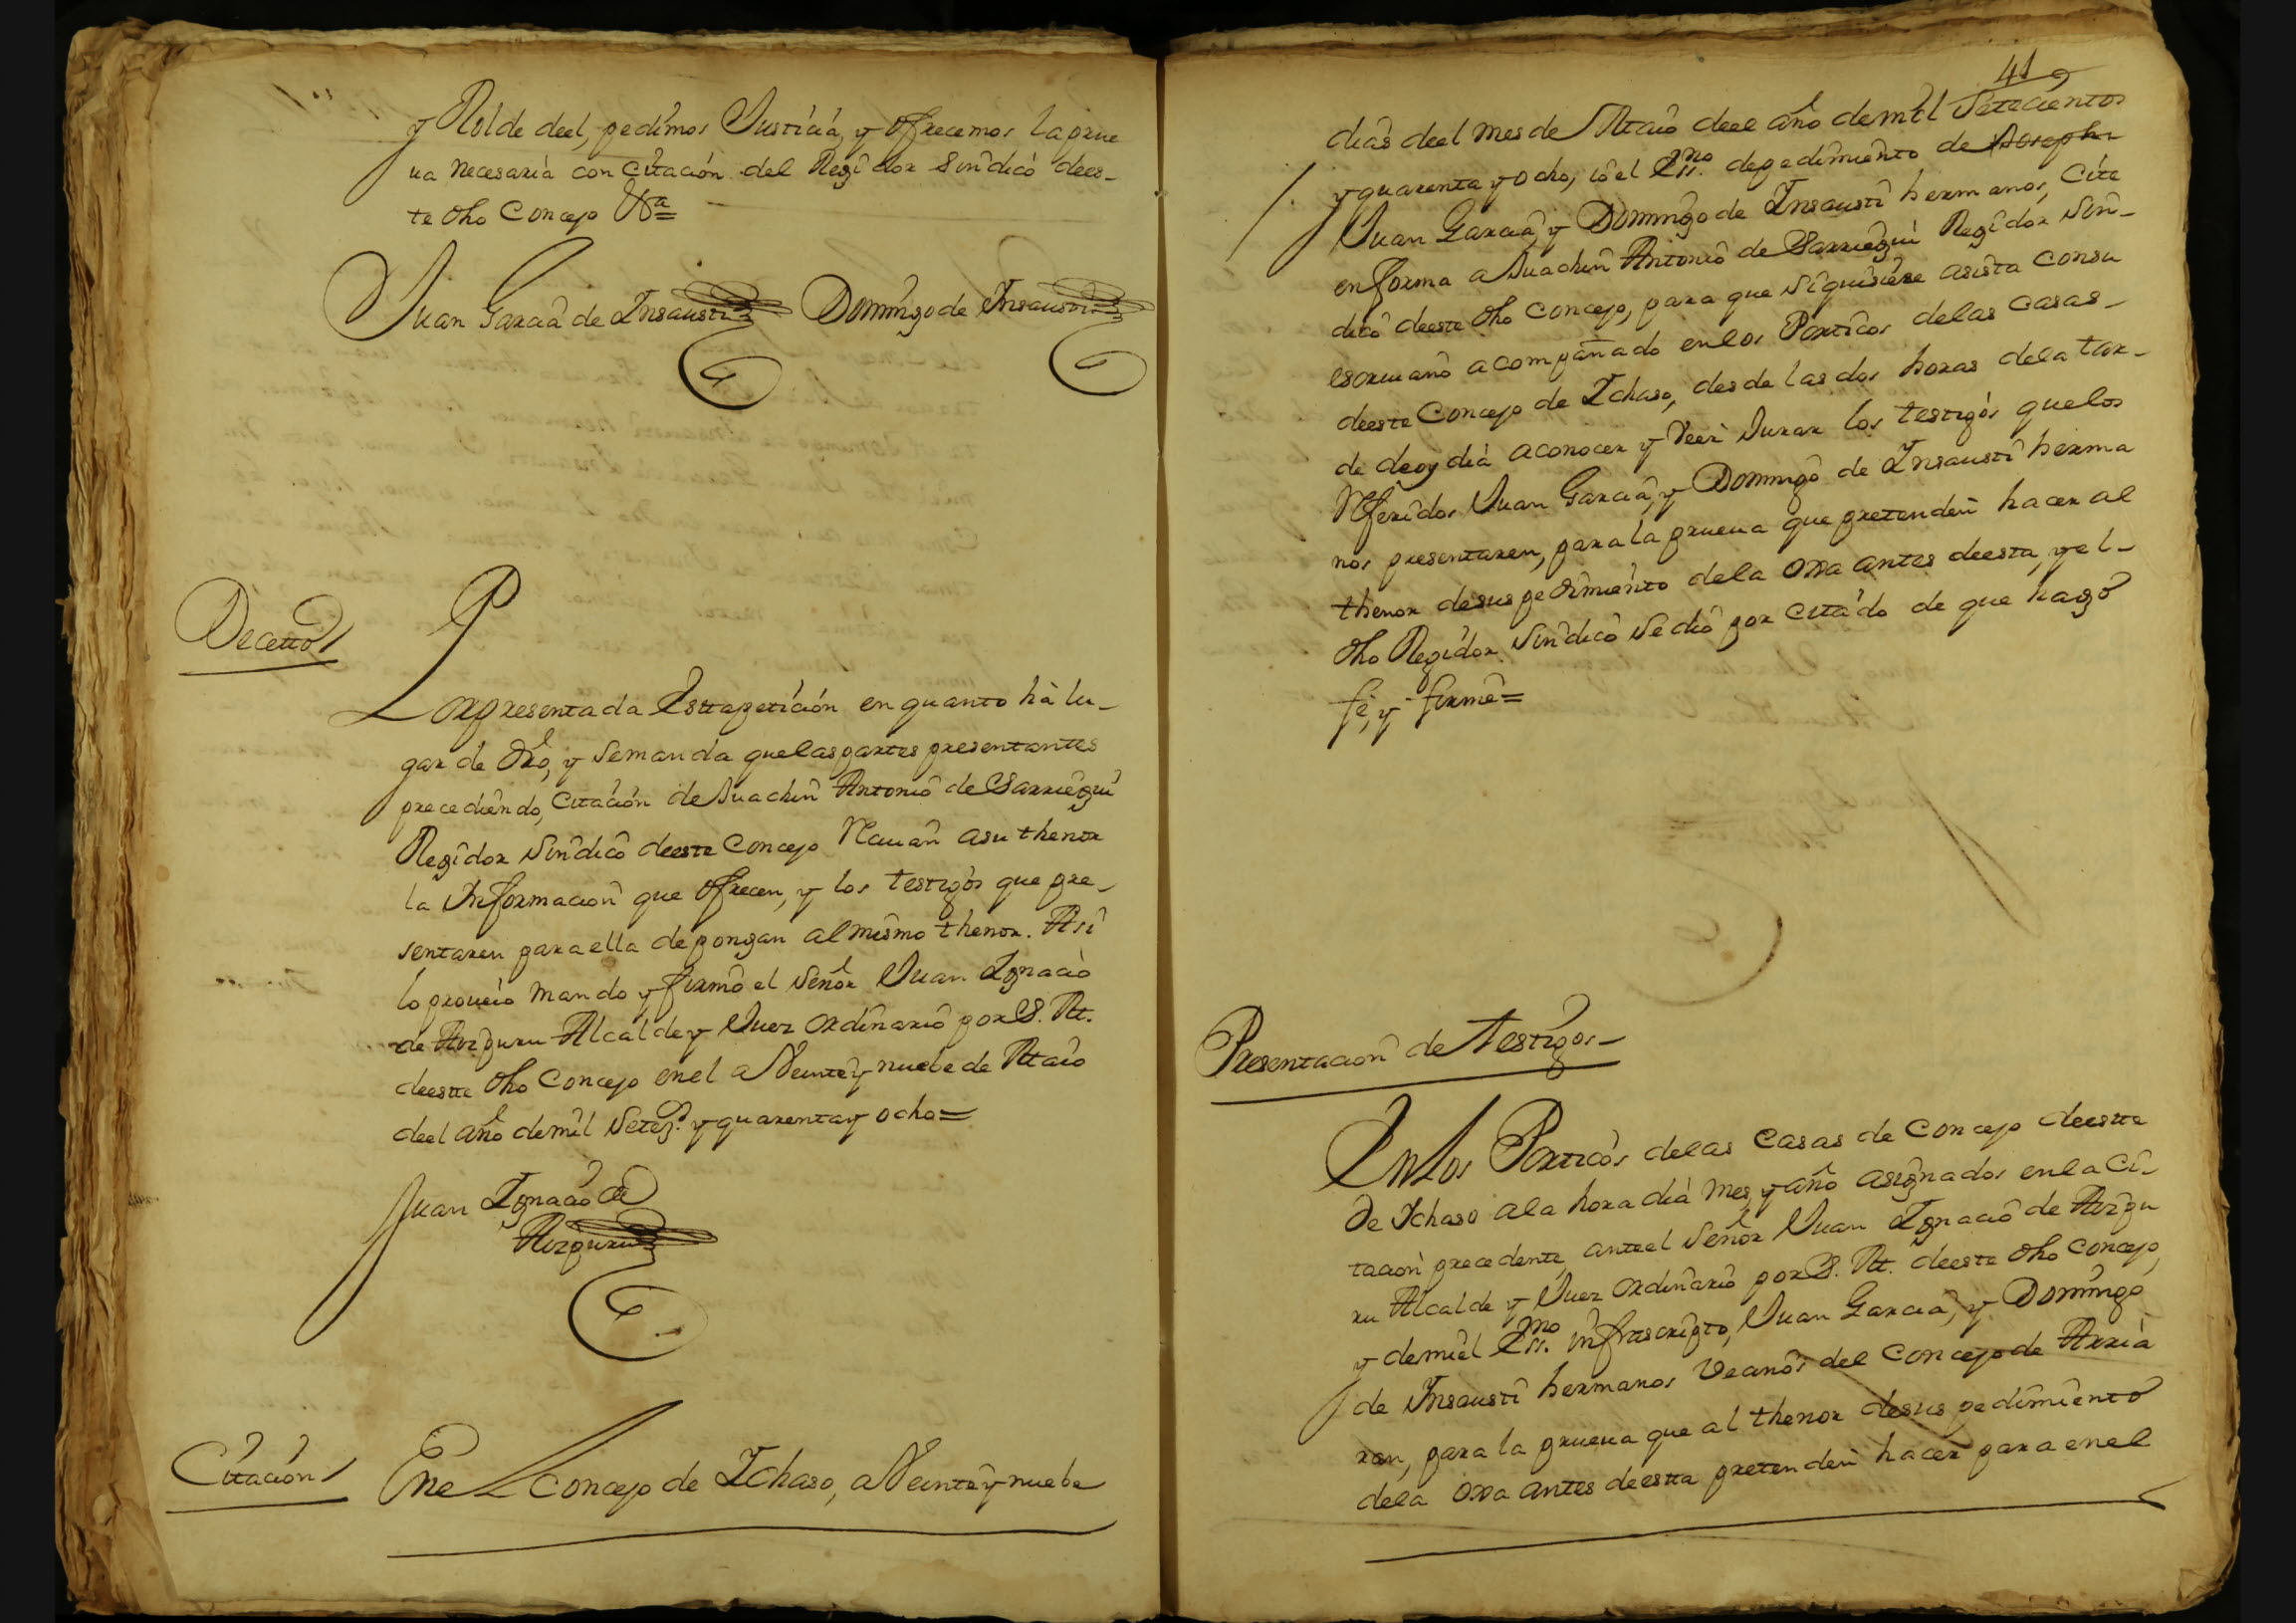 y Rolde deel, pedimos Justicia, y ofrecemos laprue
ua necesaria con citación del Regidor Sindico dees-
te dho Concejo Vª=
Juan Garcia de Insausti Domingo de Insausti
Decetto/
Porpresentada Esttapetición en quanto hà lu-
gar de dro, y Semanda quelaspartes presentantes
precediendo, Citación de Juachin Antonio de Sarriegui
Regidor Sindico deeste Concejo Reciuan asu thenor
la Informacion que ofrecen, y los testigos que pre-
sentaren para ella depongan almismo thenor. Asi
lo proueio mando y firmó el Señor Juan Ignacio
de Aizpuru Alcalde y Juez ordinario por S. M.
deestte dho Concejo enel a Veinte y nuebe de Maio
deel año demil Setez.s y quarenta y ocho=
Juan Ignacio de
Aizpuru
Citación/
Enel Concejo de Ichaso, a Veinte y nuebe
41
dias deel mes de Maio deel año demil Setecientos
y quarenta y ocho, io el Ess.no depedimiento de Joseph
Juan Garcia, y Domingo de Insausti hermanos, Cite
enforma a Juachin Antonio de Sarriegui Regidor Sin-
dico deeste dho Concejo, para que siquisiere asista consu
escriuano acompañado enlos Porticos delas casas-
deeste Concejo de Ichaso, desde las dos horas dela tar-
de deoy dia aconocer y Veer Jurar los testigos quelos
Referidos Juan Garcia, y Domingo de Insausti herma
nos presentaren, para la prueua que pretenden hacer al
thenor desus pedimiento dela oxa antes deesta, y el-
dho Regidor Sindico Se dió por citado de que hago
fé, y firmé=
Presentacion de Testigos-
En los Porticos delas Casas de Concejo deestte
De Ichaso ala hora dia mes, y año asignados enla Ci-
tacion precedente, anteel Señor Juan Ignacio de Aizpu
ru Alcalde y Juez ordinario por S. M. deeste dho concejo,
y demiel Ess.no infrascripto, Juan Garcia, y Domingo
de Insausti hermanos Vecinos del Concejo de Arria
ran, para la prueua que al thenor desus pedimiento
dela oxa antes deestta pretenden hacer para enel